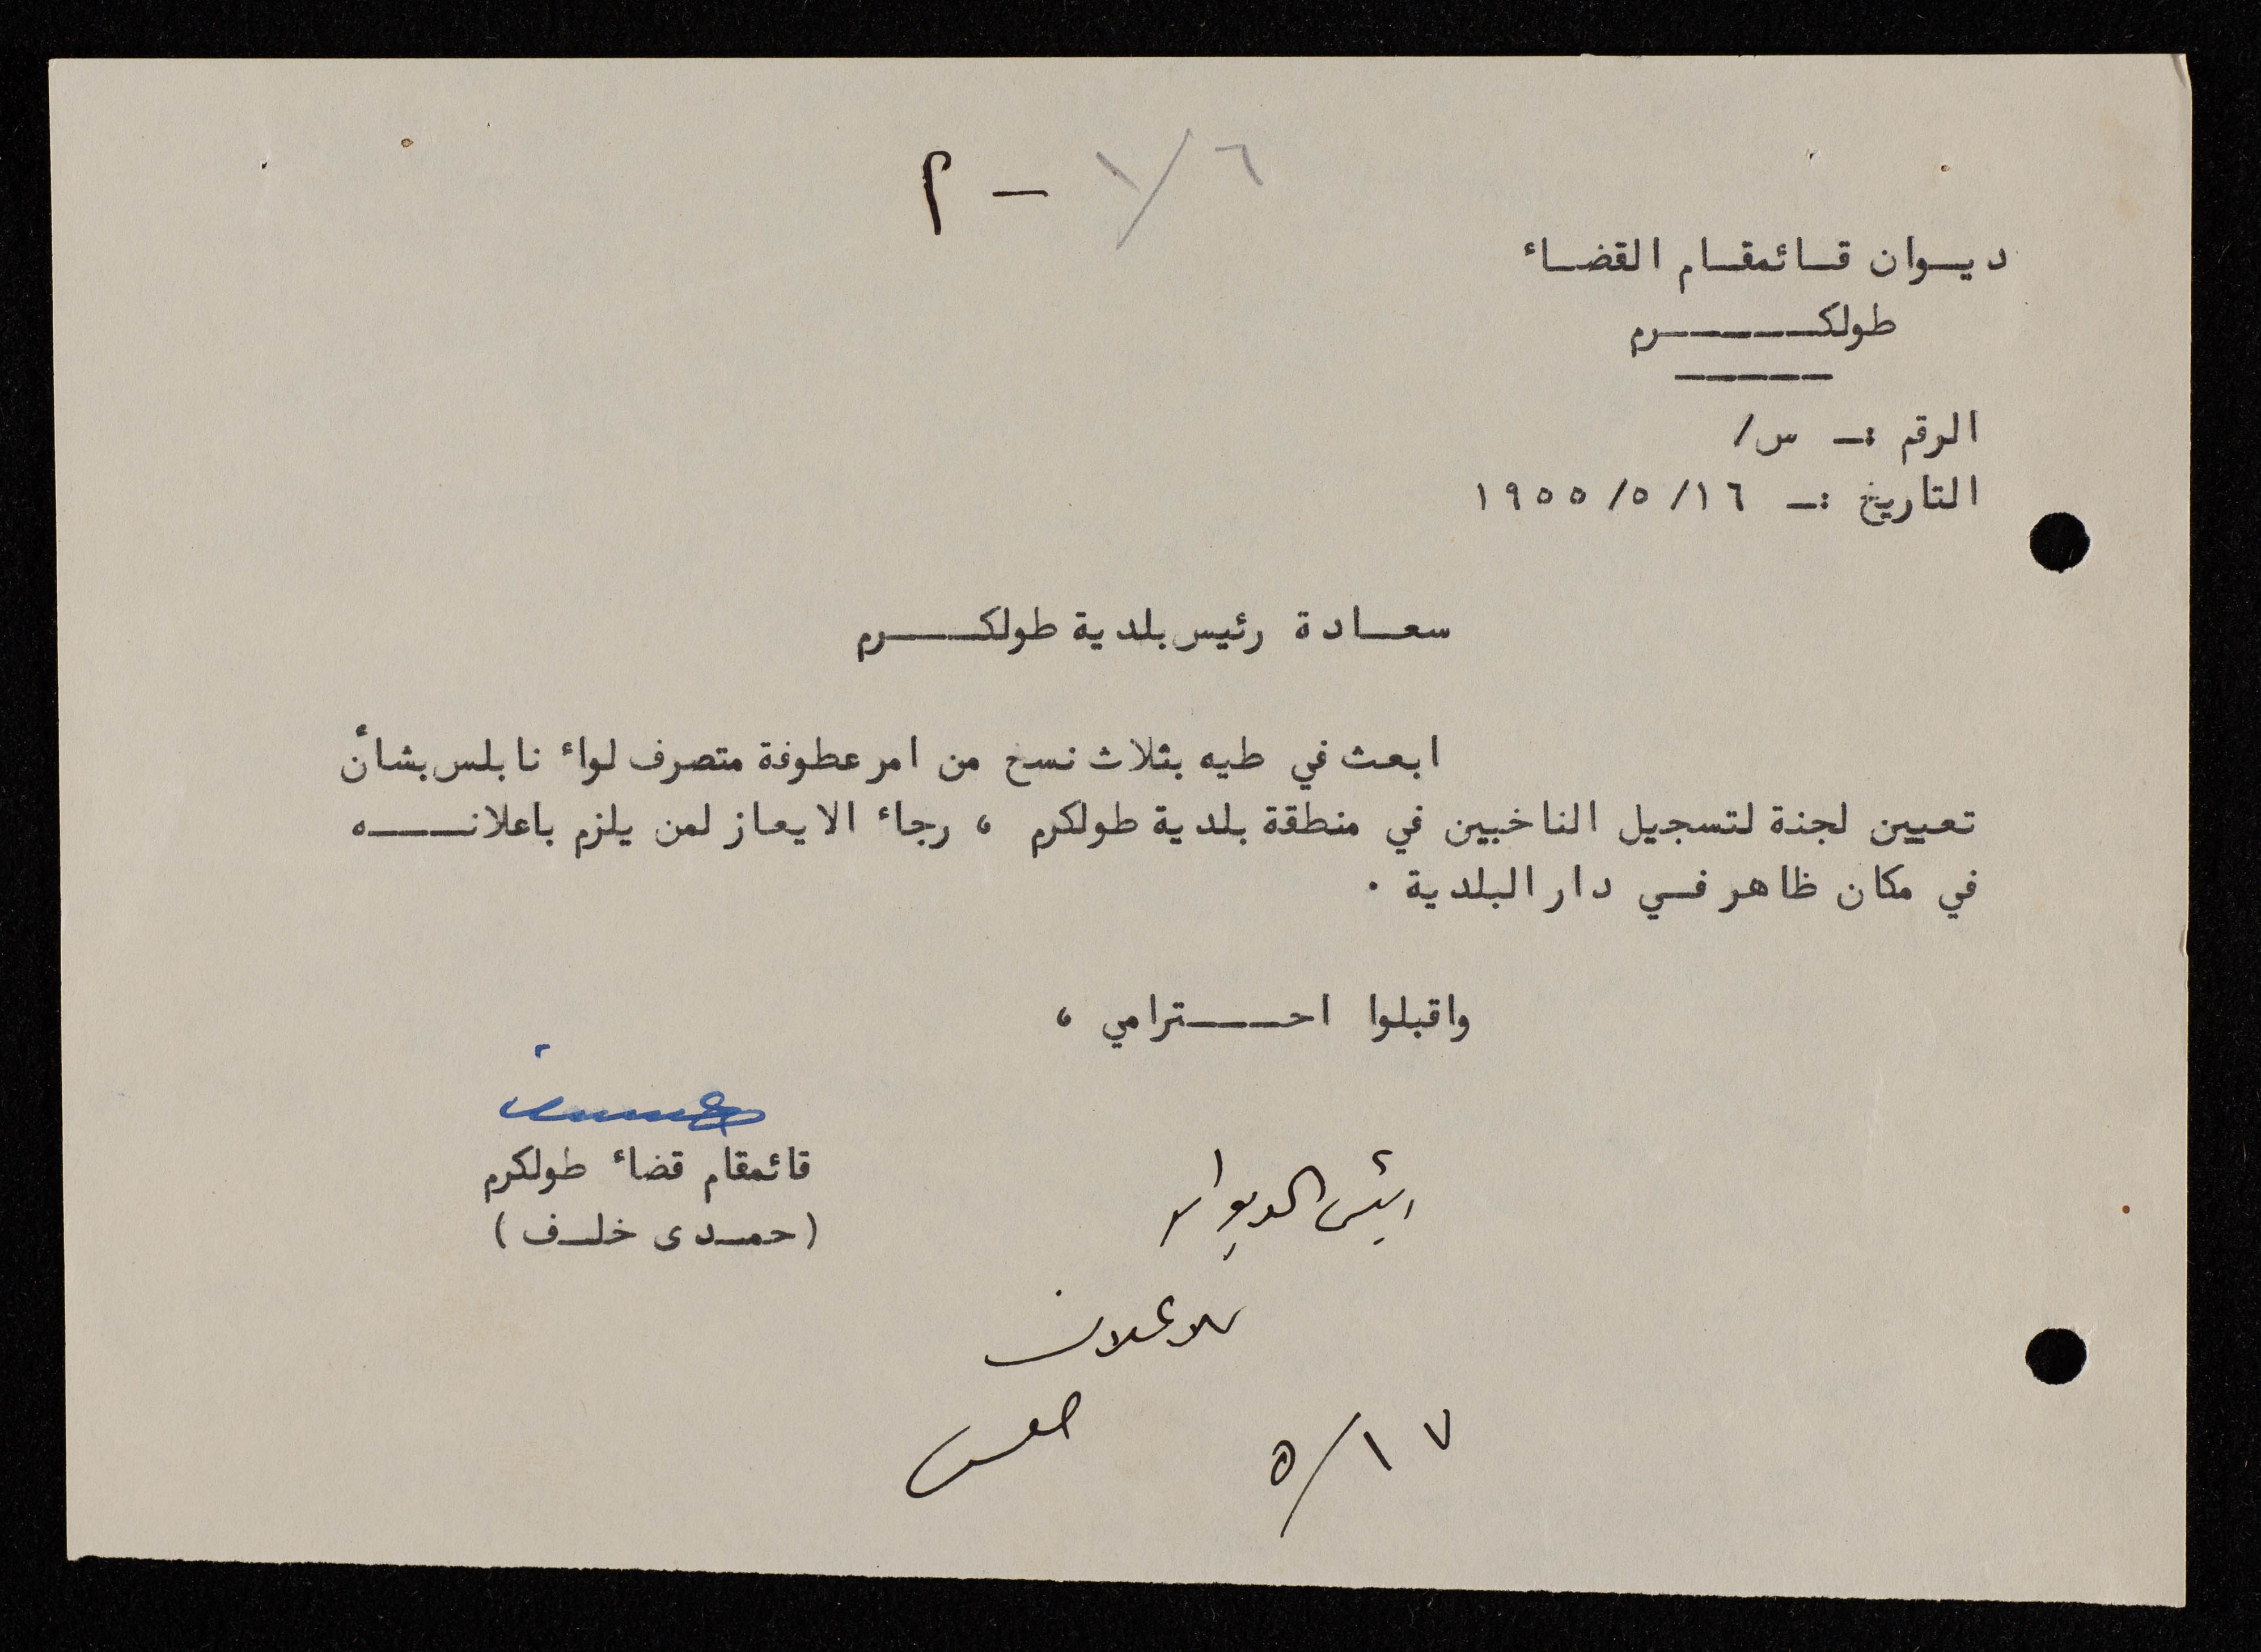 ٦/١ – م
ديوان قائمقام القضاء
طولكرم
الرقم :- س/
التاريخ :- ١٦/ ٥/ ١٩٥٥
سعادة رئيس بلدية طولكرم
ابعث في طيه بثلاث نسخ من امر عطوفة متصرف لواء نابلس بشأن
تعيين لجنة لتسجيل الناخبين في منطقة بلدية طولكرم ، رجاء الايعاز لمن يلزم باعلانه
في مكان ظاهر في دار البلدية .
واقبلوا احترامي ،
قائمقام قضاء طولكرم
(حمدى خلف)
رئيس الديوان
للاعلان
١٧/٥